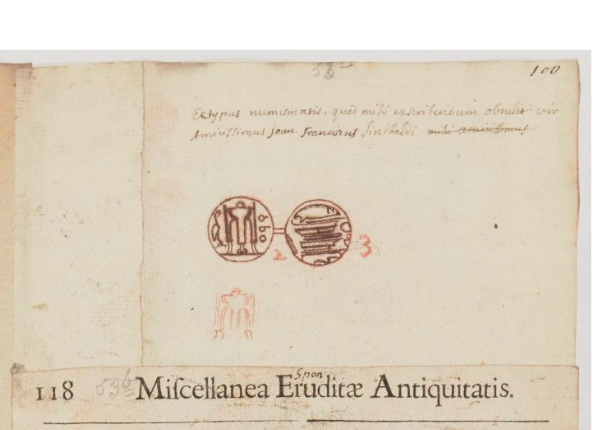 58
100
Ectypus numismatis, quod mihi exscribendum obtulit vir
Amicissimus Joan Franciscus Sinibaldi mihi amicissimus
2 3
Spon
118 536 Miſcellanea Eruditæ Antiquitatis.